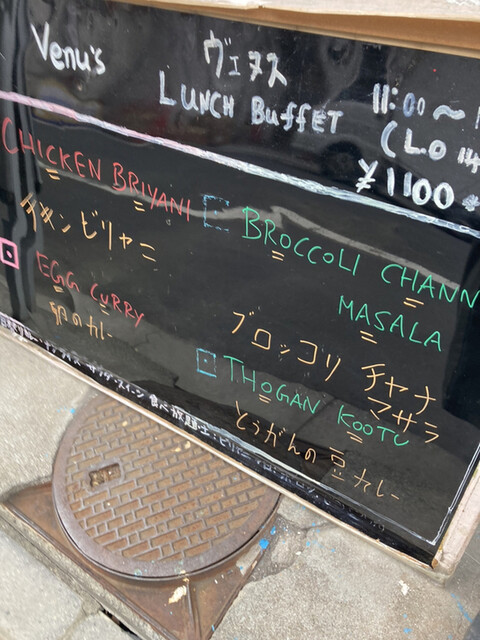 Venu's ヴェヌス
LUNCH BUFFET 11:00～
(L.O
¥1100
CHICKEN BRIYANI
チキンビリヤニ
EGG CURRY
卵のカレー
BROCCOLI CHANN
MASALA
ブロッコリ チャナ
マサラ
THOGAN KOOTU
とうがんの豆カレー
食べ放題